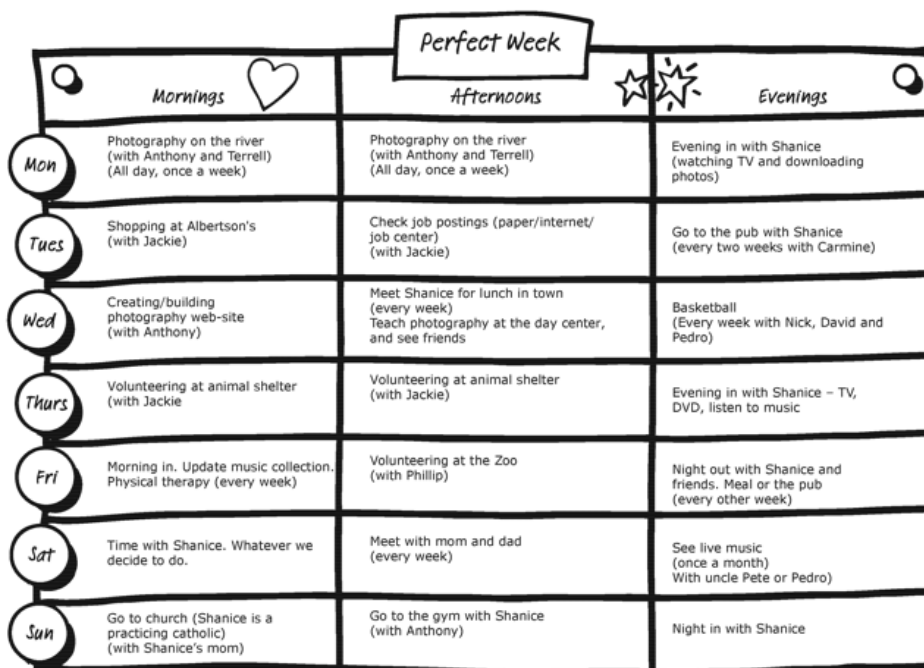 Perfect Week
Mornings
Afternoons
Evenings
Mon
Photography on the river
(with Anthony and Terrell)
(All day, once a week)
Photography on the river
(with Anthony and Terrell)
(All day, once a week)
Evening in with Shanice
(watching TV and downloading
photos)
Tues
Shopping at Albertson's
(with Jackie)
Check job postings (paper/internet/
job center)
(with Jackie)
Go to the pub with Shanice
(every two weeks with Carmine)
Wed
Creating/building
photography web-site
(with Anthony)
Meet Shanice for lunch in town
(every week)
Teach photography at the day center,
and see friends
Basketball
(Every week with Nick, David and
Pedro)
Thurs
Volunteering at animal shelter
(with Jackie
Volunteering at animal shelter
(with Jackie)
Evening in with Shanice – TV,
DVD, listen to music
Fri
Morning in. Update music collection.
Physical therapy (every week)
Volunteering at the Zoo
(with Phillip)
Night out with Shanice and
friends. Meal or the pub
(every other week)
Sat
Time with Shanice. Whatever we
decide to do.
Meet with mom and dad
(every week)
See live music
(once a month)
With uncle Pete or Pedro)
Sun
Go to church (Shanice is a
practicing catholic)
(with Shanice's mom)
Go to the gym with Shanice
(with Anthony)
Night in with Shanice